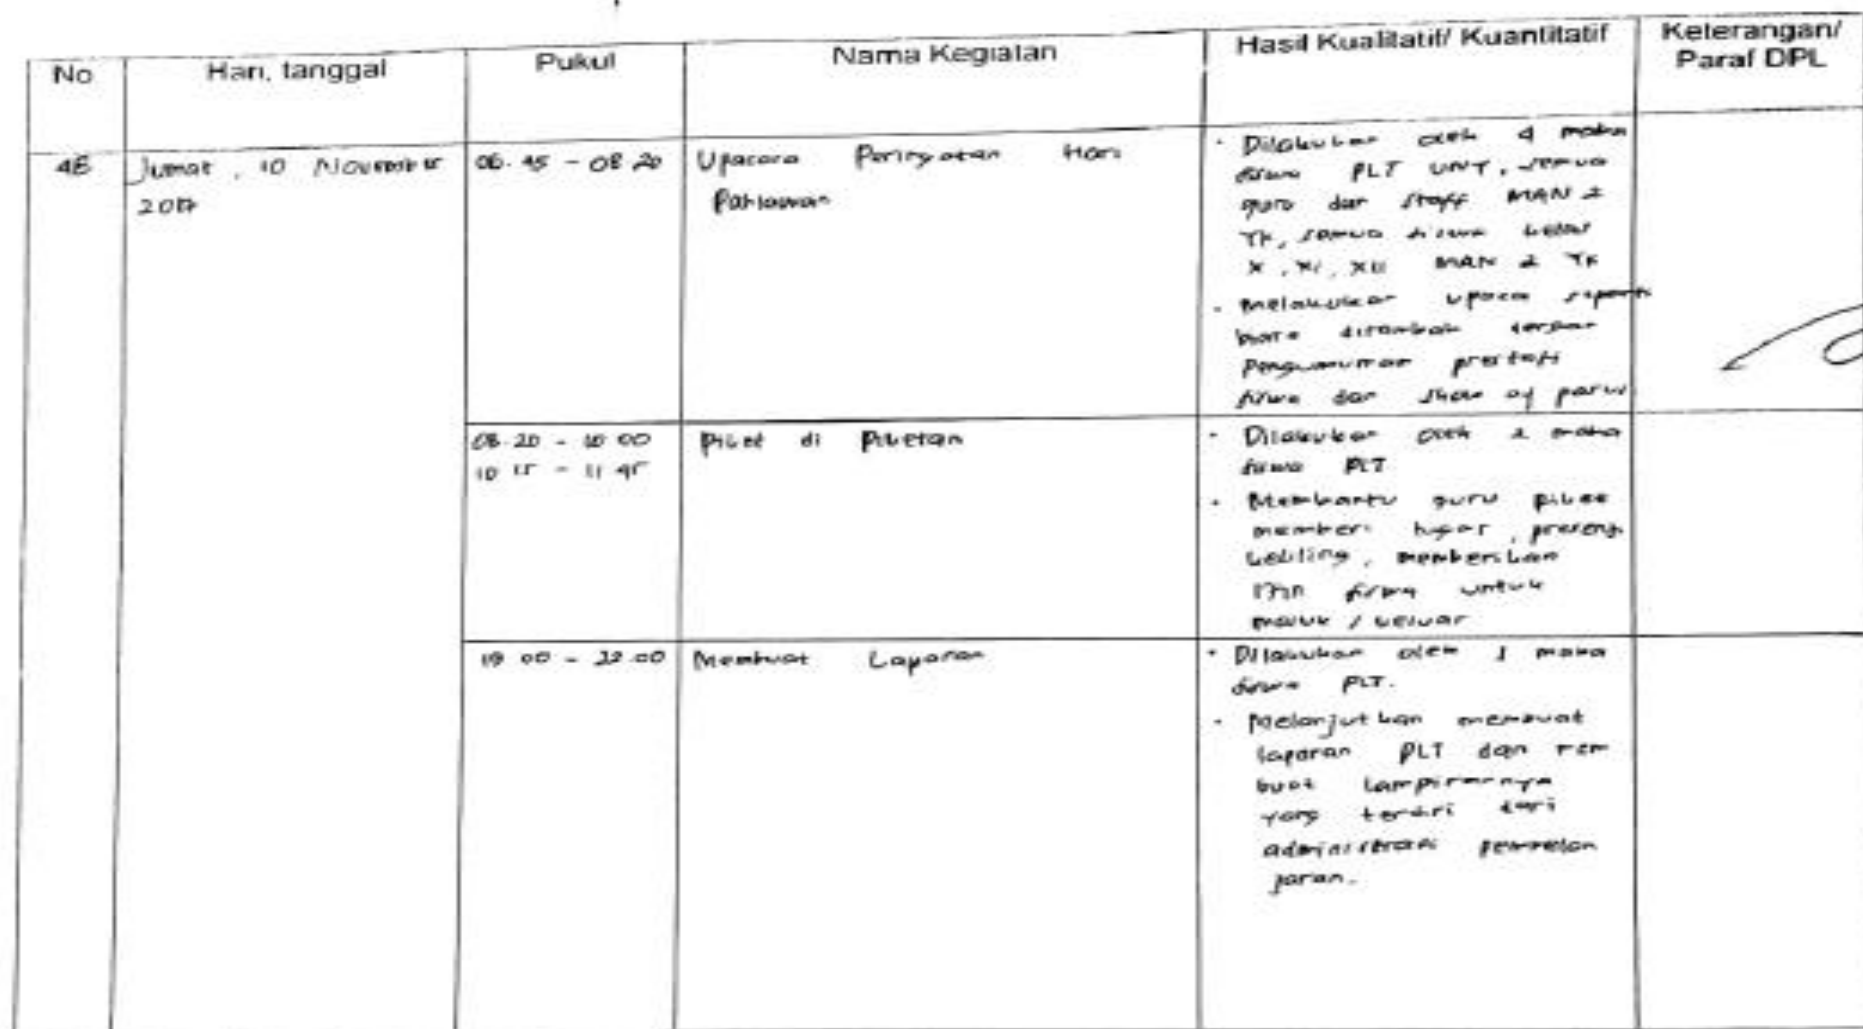 No
Hari, tanggal
Pukul
Nama Kegiatan
Hasil Kualitatif/ Kuantitatif
Keterangan/
Paraf DPL
Jumat, 10 November
2017
06.45 - 08.20
Upacara Peringatan Hari
Pahlawan
- Dilakukan oleh 4 maha
siswa PLT UNY, semua
guru dan staff MAN 2
YK, semua siswa kelas
X, XI, XII MAN 2 YK
- Melakukan upacara seperti
ditambah dengan
Pengumuman prestasi
siswa dan
08.20 - 10.00
10.15 - 11.45
Piket di Piketan
- Dilakukan oleh 2 maha
siswa PLT
- Membantu guru piket
memberi tugas, presensi
keliling, memberikan
izin siswa untuk
masuk / keluar
19.00 - 22.00
Membuat Laporan
- Dilakukan oleh 1 maha
siswa PLT.
- Melanjutkan membuat
laporan PLT dan mem
buat lampirannya
yang terdiri dari
administrasi pembelan
jaran.